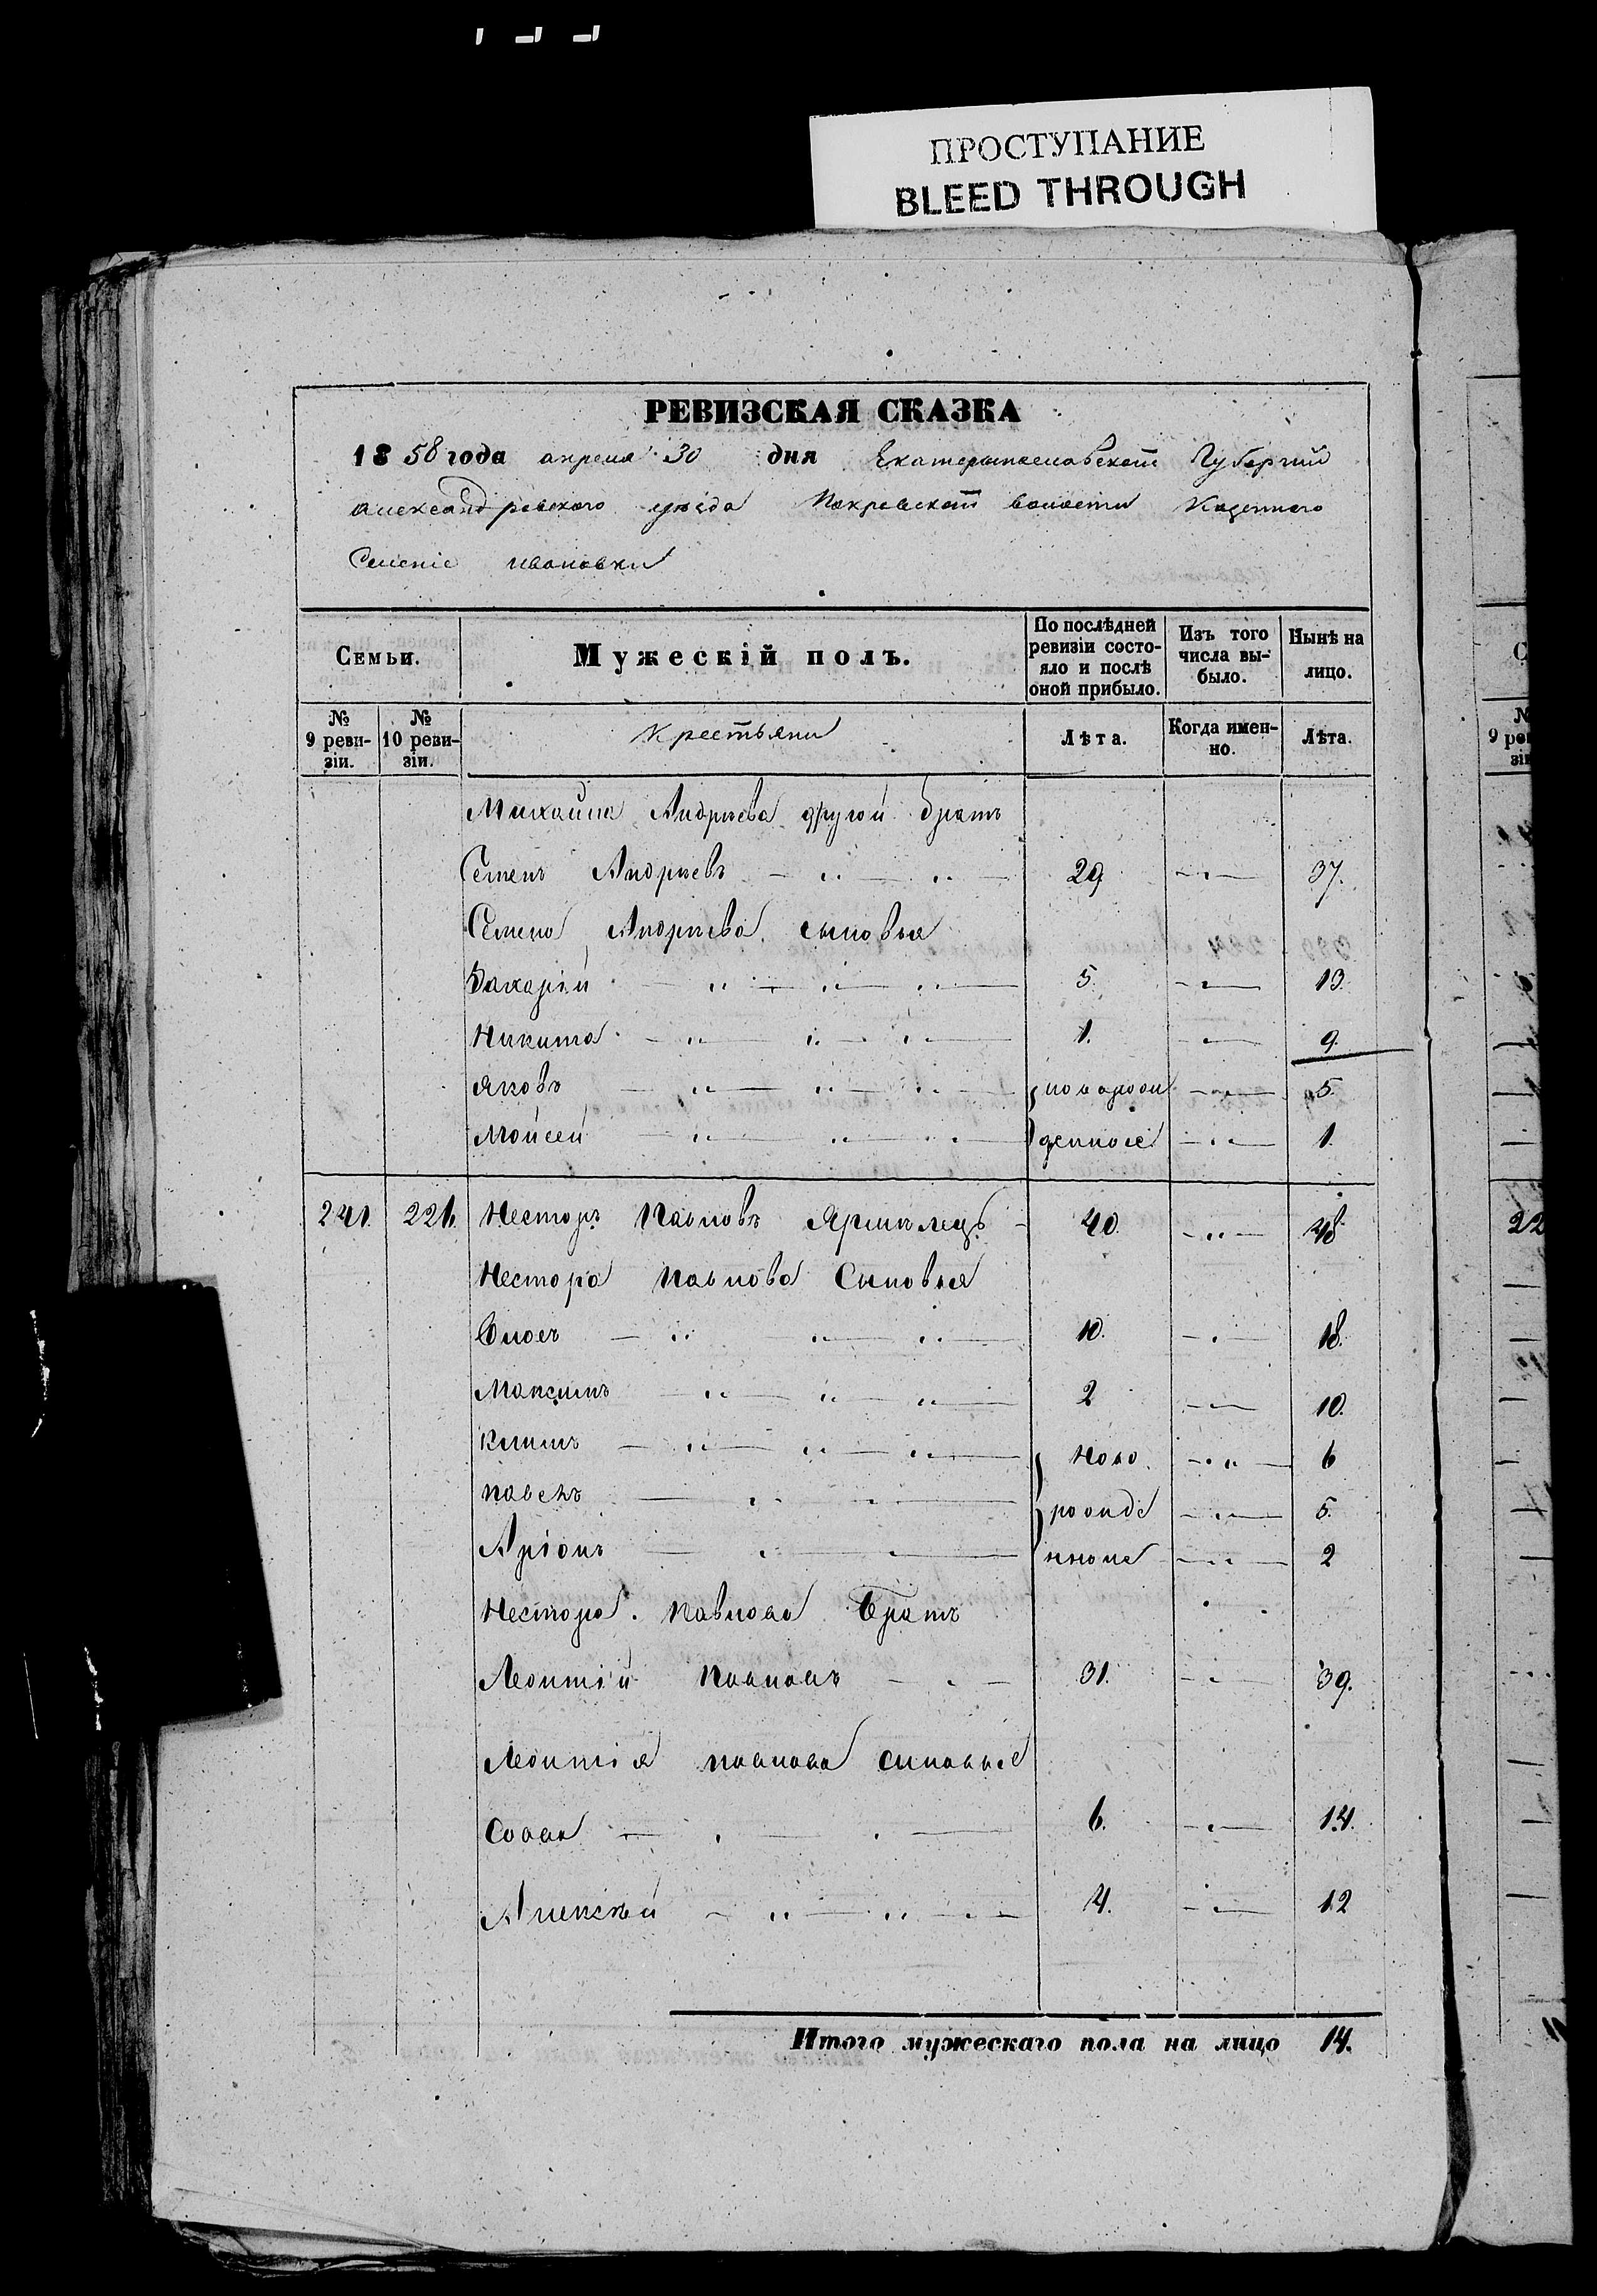 ПРОСТУПАНИЕ
BLEED THROUGH
РЕВИЗСКАЯ СКАЗКА
1858 года апреля 30 дня Екатеринославской Губернии
александровского уезда Покровской волости Казенного
Селенie ивановки
Семьи.
Мужескiй полъ.
По послѣдней ревизiи состояло и послѣ оной прибыло.
Изъ того числа выбыло.
Нынѣ на лицо.
№ 9 ревизiи.
№ 10 ревизiи.
Крестьяни
Лѣта.
Когда именно.
Лѣта.
Михаила Андрѣева другой братъ
Семенъ Андрѣевъ 29 37.
Семена Андрѣева сыновья
Захарiй 5. 13.
Никита 1. 9.
Яковъ новорож 5.
Мойсей денные 1.
241. 221. Несторъ Павловъ 40. 48
Нестора Павлова Сыновья
10. 18.
Максимъ 2 10.
Климъ ново 6
Павелъ рожде 5.
Арiонъ нные 2
Нестора Павлова Братъ
Леонтiй Павловъ 31. 39.
Леонтiя Павлова сыновья
Савва 6. 14.
Алексѣй 4. 12
Итого мужескаго пола на лицо 14.